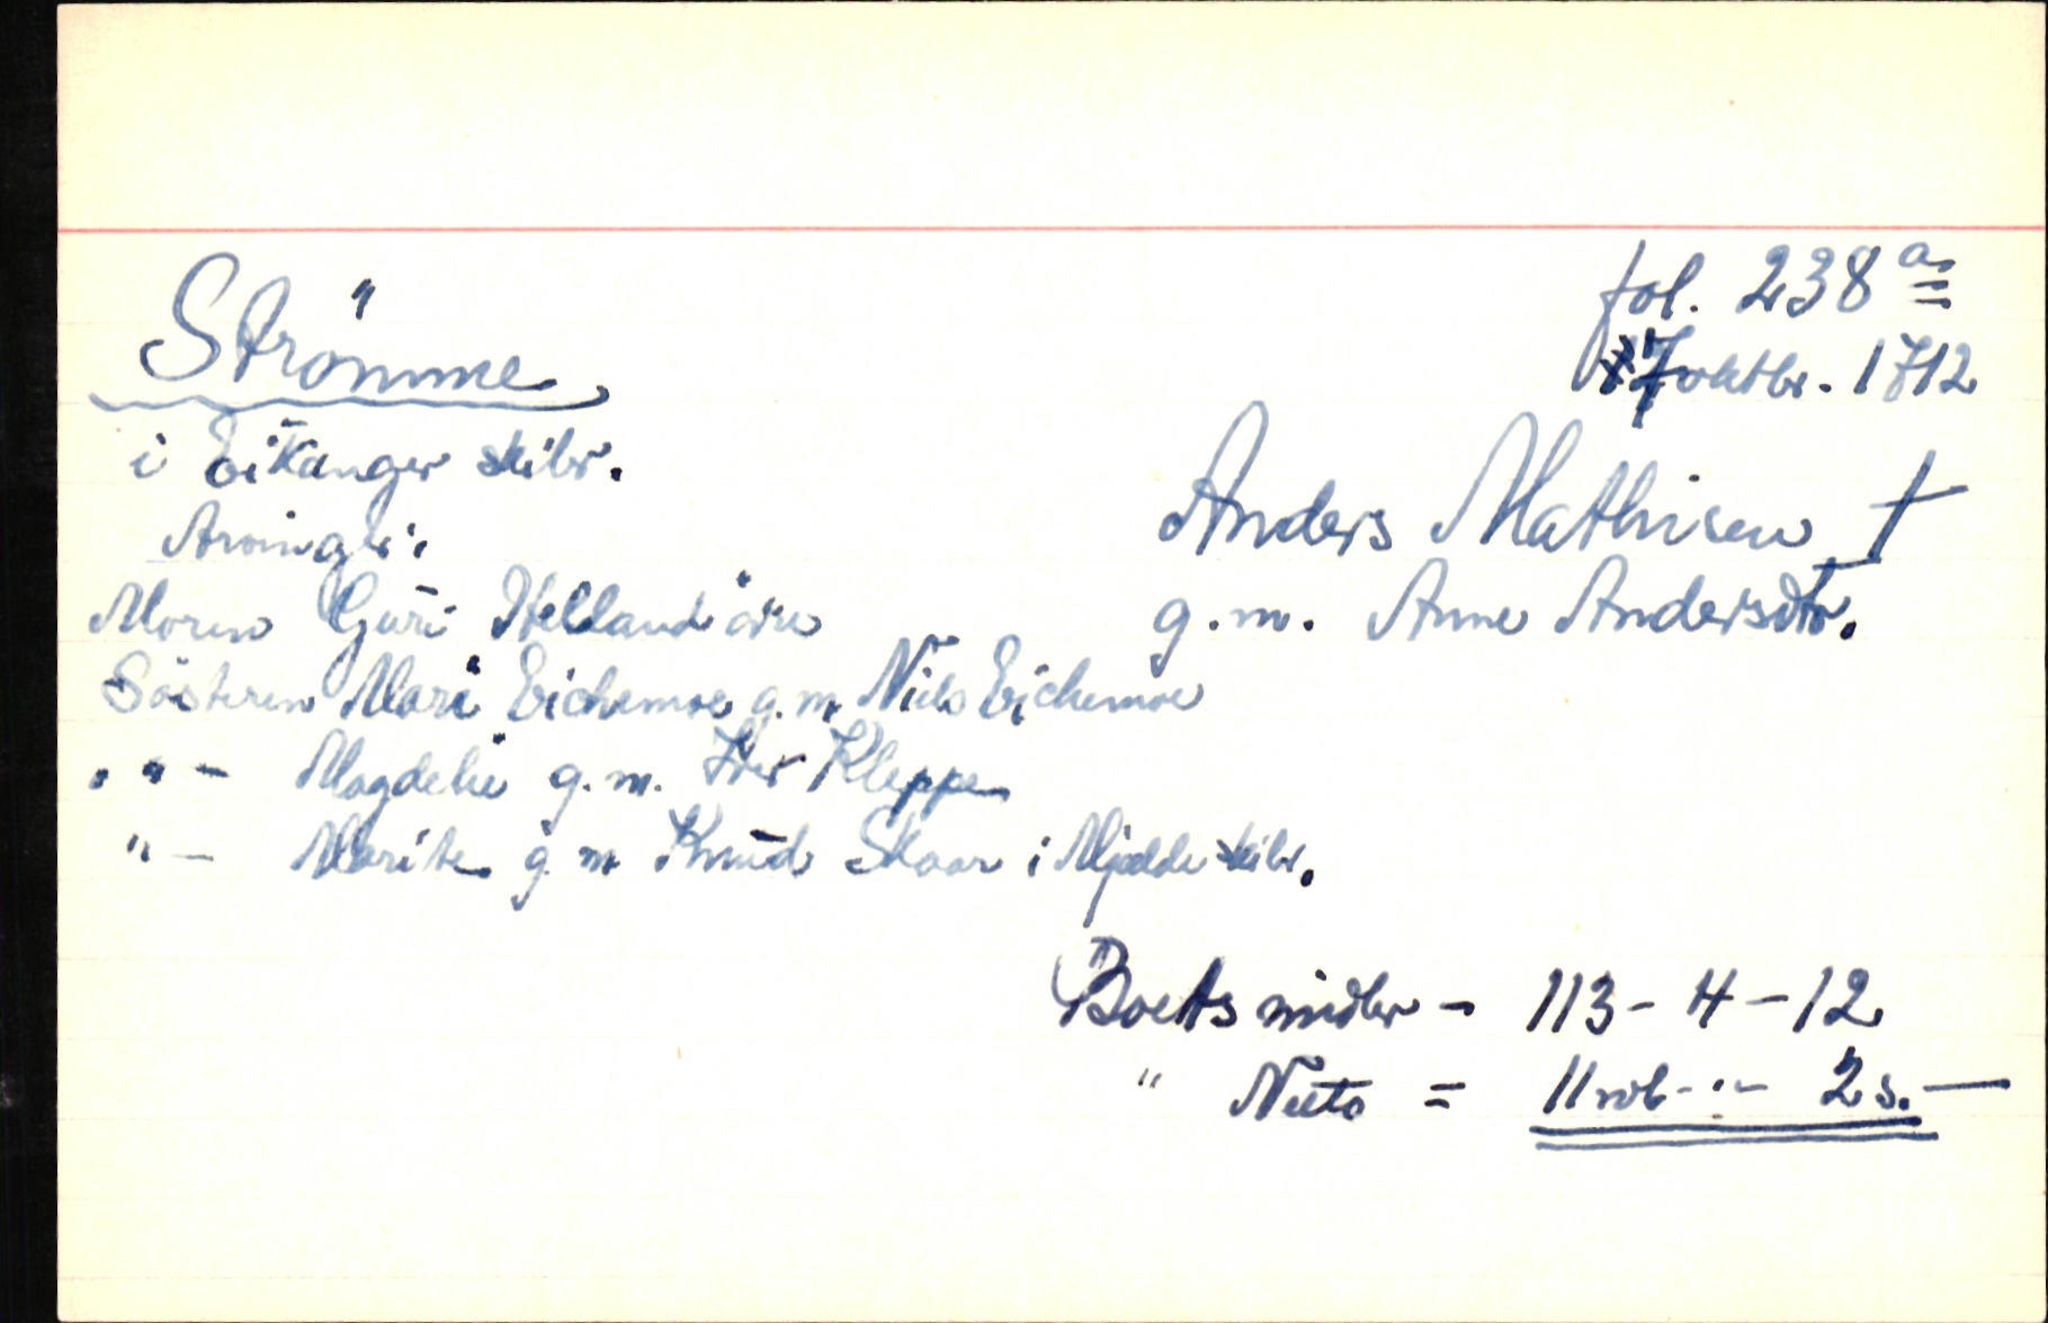 Strömme
i Eikanger skibr.
Arvinger:
Moren Guri Helland
Søsteren Mari Eichemoe g.m. Niels Eichemoe
" " - Magdeli g.m. Iver Kleppe
" - Marite g m Knud Skaar i Mjelde skibr.
fol. 238 a
17 oktbr. 1712
Anders Mathisen †
g.m. Anne Andersdtr.
Boets midler - 113 - 4 - 12
" Netto = 11 rdl - " - 2 s. -